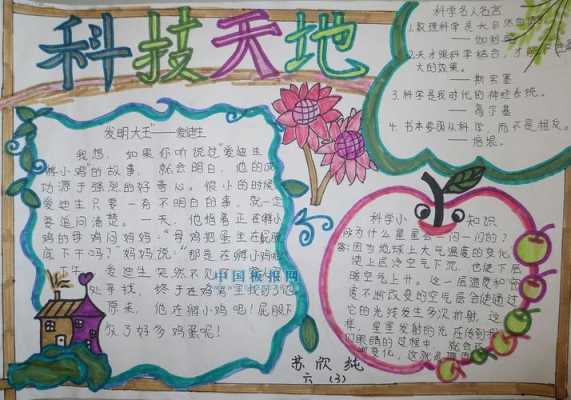 科技天地
发明大王"——爱迪生
我想，如果你听说过"爱迪生
孵小鸡"的故事，就会明白，他的成
功源于强烈的好奇心。很小的时候
爱迪生只要一有不明白的事，就一定
要追问清楚。一天，他指着正在孵小
鸡的母鸡问妈妈："母鸡把蛋坐在屁股
底下干吗？"妈妈说："那是在孵小鸡呢
爱迪生突然不见了
处寻找，终于在鸡窝里找到了他
原来，他在孵小鸡呢！屁股下
放了好多鸡蛋呢！
中国板报网
科学名人名言
1.数理科学是大自然
——伽利略
2.天才跟科学结合，才能
大的效果。
——斯宾塞
3.科学是我时代的神经系统。
——高尔基
4.书本要跟从科学，而不是相反。
——培根。
科学小知识
问为什么星星会一闪一闪的？
答：因为地球上大气温度的变化
使上层冷空气下沉，也使下层
暖空气上升。这一层温度和密
度不断改变的空气层会使通过
它的光线发生多次折射，这
样，星星发射的光在传到我
们眼睛的过程中，就会
变化，这就
苏欣纯
六（3）